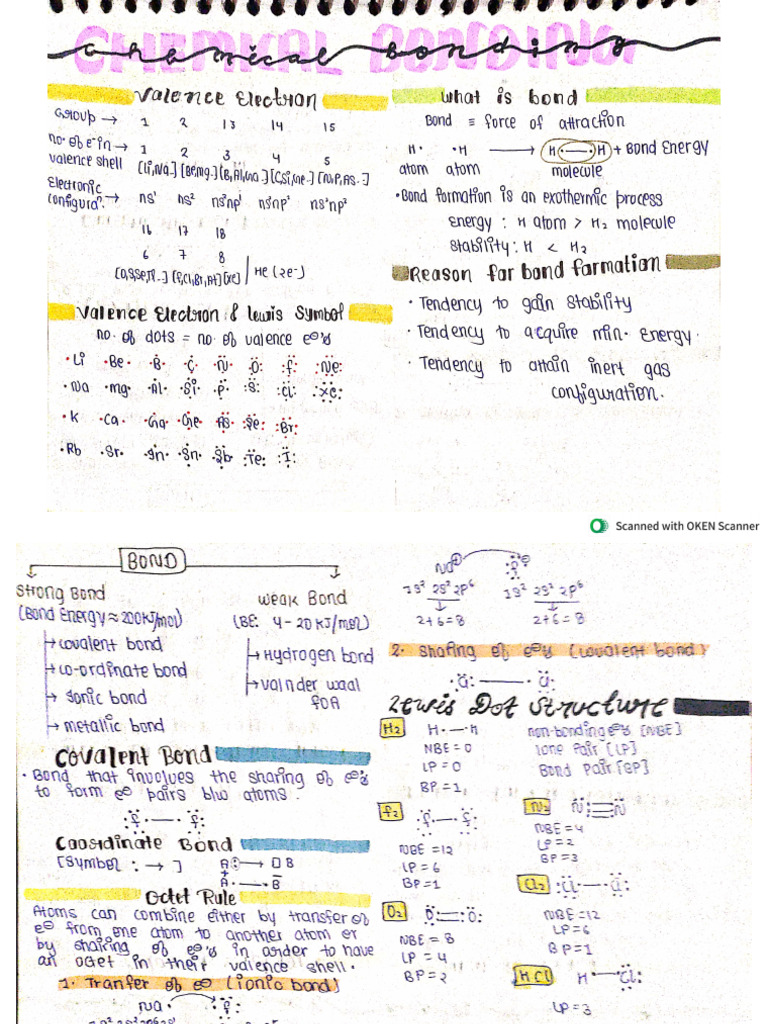 Chemical Bonding
Valence Electron
Group → 1 2 13 14 15
no. of e⁻ in → 1 2 3 4 5
valence shell [Li,Na.] [Be,mg.] [B, Al,Ga..] [C,Si,Ge..] [N,P,As..]
Electronic
configura". → ns¹ ns² ns²np¹ ns²np² ns²np²
16 17 18
6 7 8
[O,S,Se,Te..] [f,Cl,Br,At] [Xe] He (2e⁻)
Valence Electron & lewis Symbol
no. of dots = no. of valence e⊖'s
Li Be B C N O f Ne
Na mg Al Si P S Cl Xe
K Ca Ga Ge As Se Br
Rb Sr In Sn Sb Te I
What is bond
Bond ≡ force of attraction
H· ·H → H·—·H + Bond Energy
atom atom molecule
• Bond formation is an exothermic process
Energy : H atom > H₂ molecule
Stability : H < H₂
Reason for bond formation
• Tendency to gain stability
• Tendency to acquire min. Energy.
• Tendency to attain inert gas
configuration.
Scanned with OKEN Scanner
BOND
Strong Bond
(Bond Energy ≈ 200KJ/mol)
→ covalent bond
→ co-ordinate bond
→ Ionic bond
→ metallic bond
weak Bond
(BE: 4 - 20 KJ/mol)
→ Hydrogen bond
→ Vainder waal
fOA
Covalent Bond
• Bond that involves the sharing of e⊖'s
to form e⊖ pairs b/w atoms.
f — f
Coordinate Bond
[Symbol : → ] A → □ B
A — B
Octet Rule
Atoms can combine either by transfer of
e⊖ from one atom to another atom or
by sharing of e⊖'s in order to have
an octet in their valence shell.
1. Tranfer of e⊖ (ionic bond)
Na f
Na⊕ f⊖
1s² 2s² 2p⁶ 1s² 2s² 2p⁶
2+6=8 2+6=8
2. Sharing of e⊖'s (covalent bond)
Cl — Cl
Lewis Dot Structure
H₂ H·—·H
NBE = 0
LP = 0
BP = 1
non-bonding e⊖'s [NBE]
lone Pair [LP]
Bond Pair [BP]
f₂ f — f
NBE = 12
LP = 6
BP = 1
N₂ N≡N
NBE = 4
LP = 2
BP = 3
O₂ O=O
NBE = 8
LP = 4
BP = 2
Cl₂ Cl — Cl
NBE = 12
LP = 6
BP = 1
HCl H — Cl
LP = 3